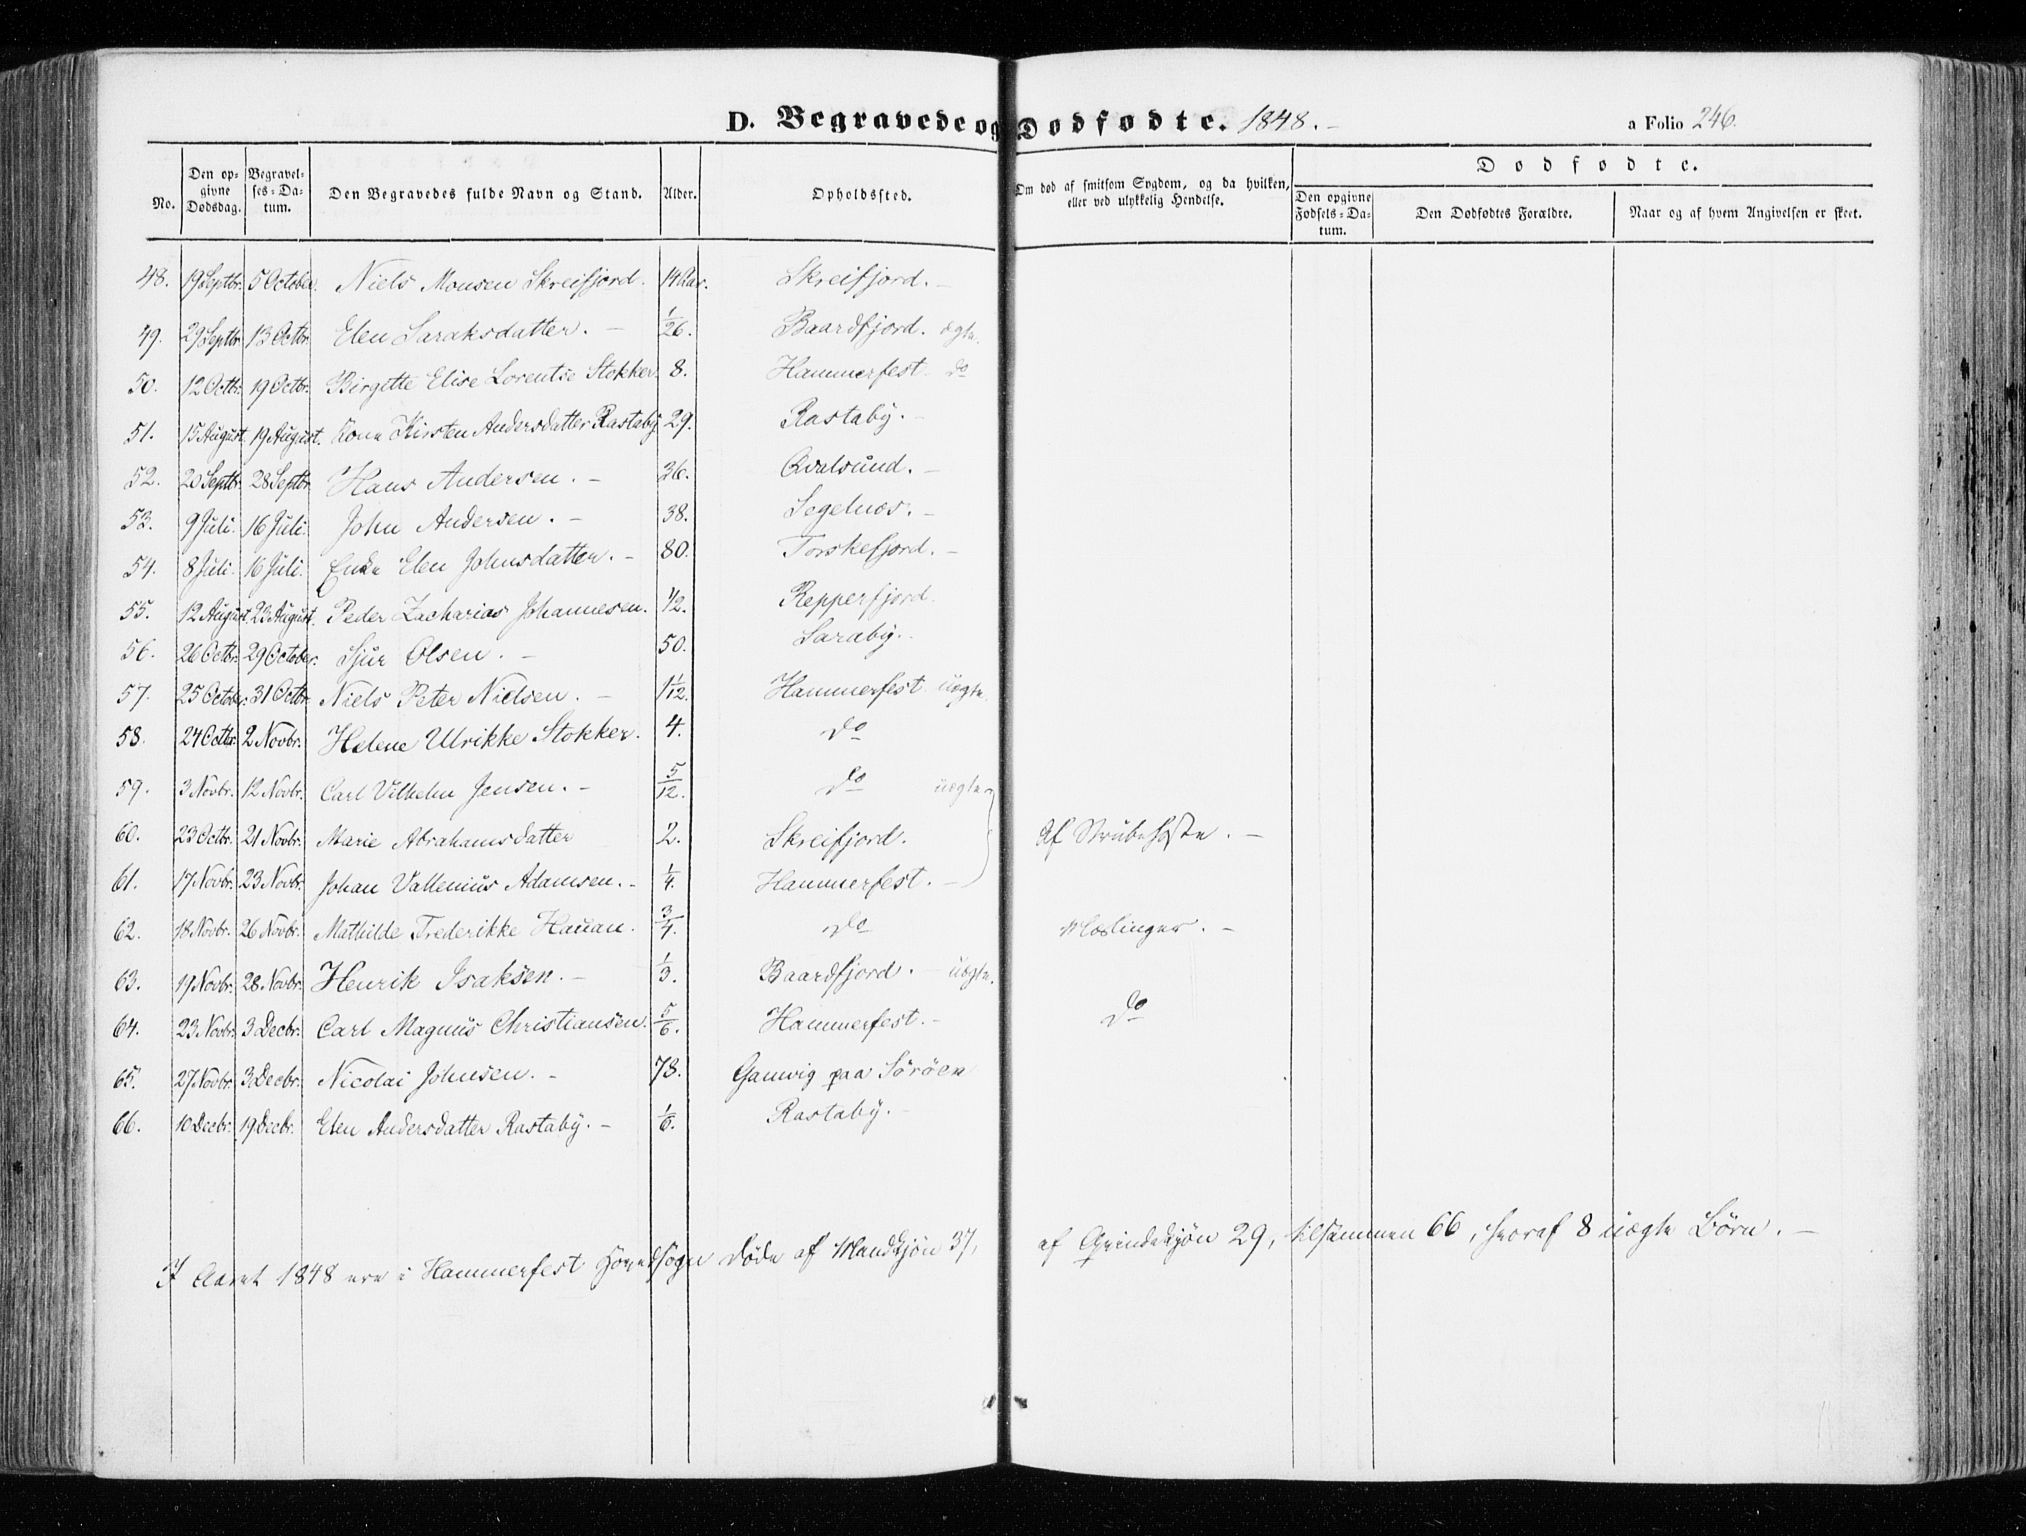 D. Begravede og Dødfødte. 1848. -
a Folio 246.
No.
Den opgivne Dødsdag.
Begravelses-Datum.
Den Begravedes fulde Navn og Stand.
Alder.
Opholdssted.
Om død af smitsom Sygdom, og da hvilken, eller ved ulykkelig Hendelse.
Dødfødte.
Den opgivne Fødsels-Datum.
Den Dødfødtes Forældre.
Naar og af hvem Angivelsen er skeet.
48. 19 Septbr. 5 October. Niels Monsen Skreifjord. 14 Aar. Skreifjord. -
49. 29 Septbr. 13 Octbr. Elen Saraksdatter. - 1/26. Baardfjord. ægte.
50. 12 Octbr. 19 Octbr. Birgitte Elise Lorentse Stokker. 8. Hammerfest. do
51. 15 August. 19 August. Kone Kirsten Andersdatter Rastaby. 29. Rastaby. -
52. 20 Septbr. 28 Septbr. Hans Andersen. - 36. Qvalsund. -
53. 9 Juli. 16 Juli. John Andersen. - 38. Segelnæs. -
54. 8 Juli. 16 Juli. Enke Elen Johnsdatter. - 80. Torskefjord. -
55. 12 August. 23 August. Peder Zacharias Johannesen. 1/2. Repperfjord.
56. 26 Octbr. 29 October. Sjur Olsen. - 50. Saraby. -
57. 25 October. 31 Octbr. Niels Peter Nielsen. - 1 1/12. Hammerfest uægte.
58. 24 Octbr. 2 Novbr. Helene Ulrikke Stokker. 4. do
59. 3 Novbr. 12 Novbr. Carl Vilhelm Jensen. - 5/12. do uægte
60. 23 Octbr. 21 Novbr. Marie Abrahamsdatter 2. Skreifjord. Af Strubehoste. -
61. 17 Novbr. 23 Novbr. Johan Vallenius Adamsen. - 1/4. Hammerfest. -
62. 18 Novbr. 26 Novbr. Mathilde Frederikke Hauan. 3/4. do Mæslinger. -
63. 19 Novbr. 28 Novbr. Henrik Isaksen. - 1/3. Baardfjord. - uægte.
64. 23 Novbr. 3 Decbr. Carl Magnus Christiansen. 5/6. Hammerfest. - do
65. 27 Novbr. 3 Decbr. Nicolai Johnsen. - 78. Gamvig paa Sørøen
66. 10 Decbr. 19 Decbr. Elen Andersdatter Rastaby. - 1/6. Rastaby. -
I Aaret 1848 ere i Hammerfest Hovedsogn døde af Mandkjøn 37, af Qvindekjøn 29, tilsammen 66, hvoraf 8 uægte Børn. -